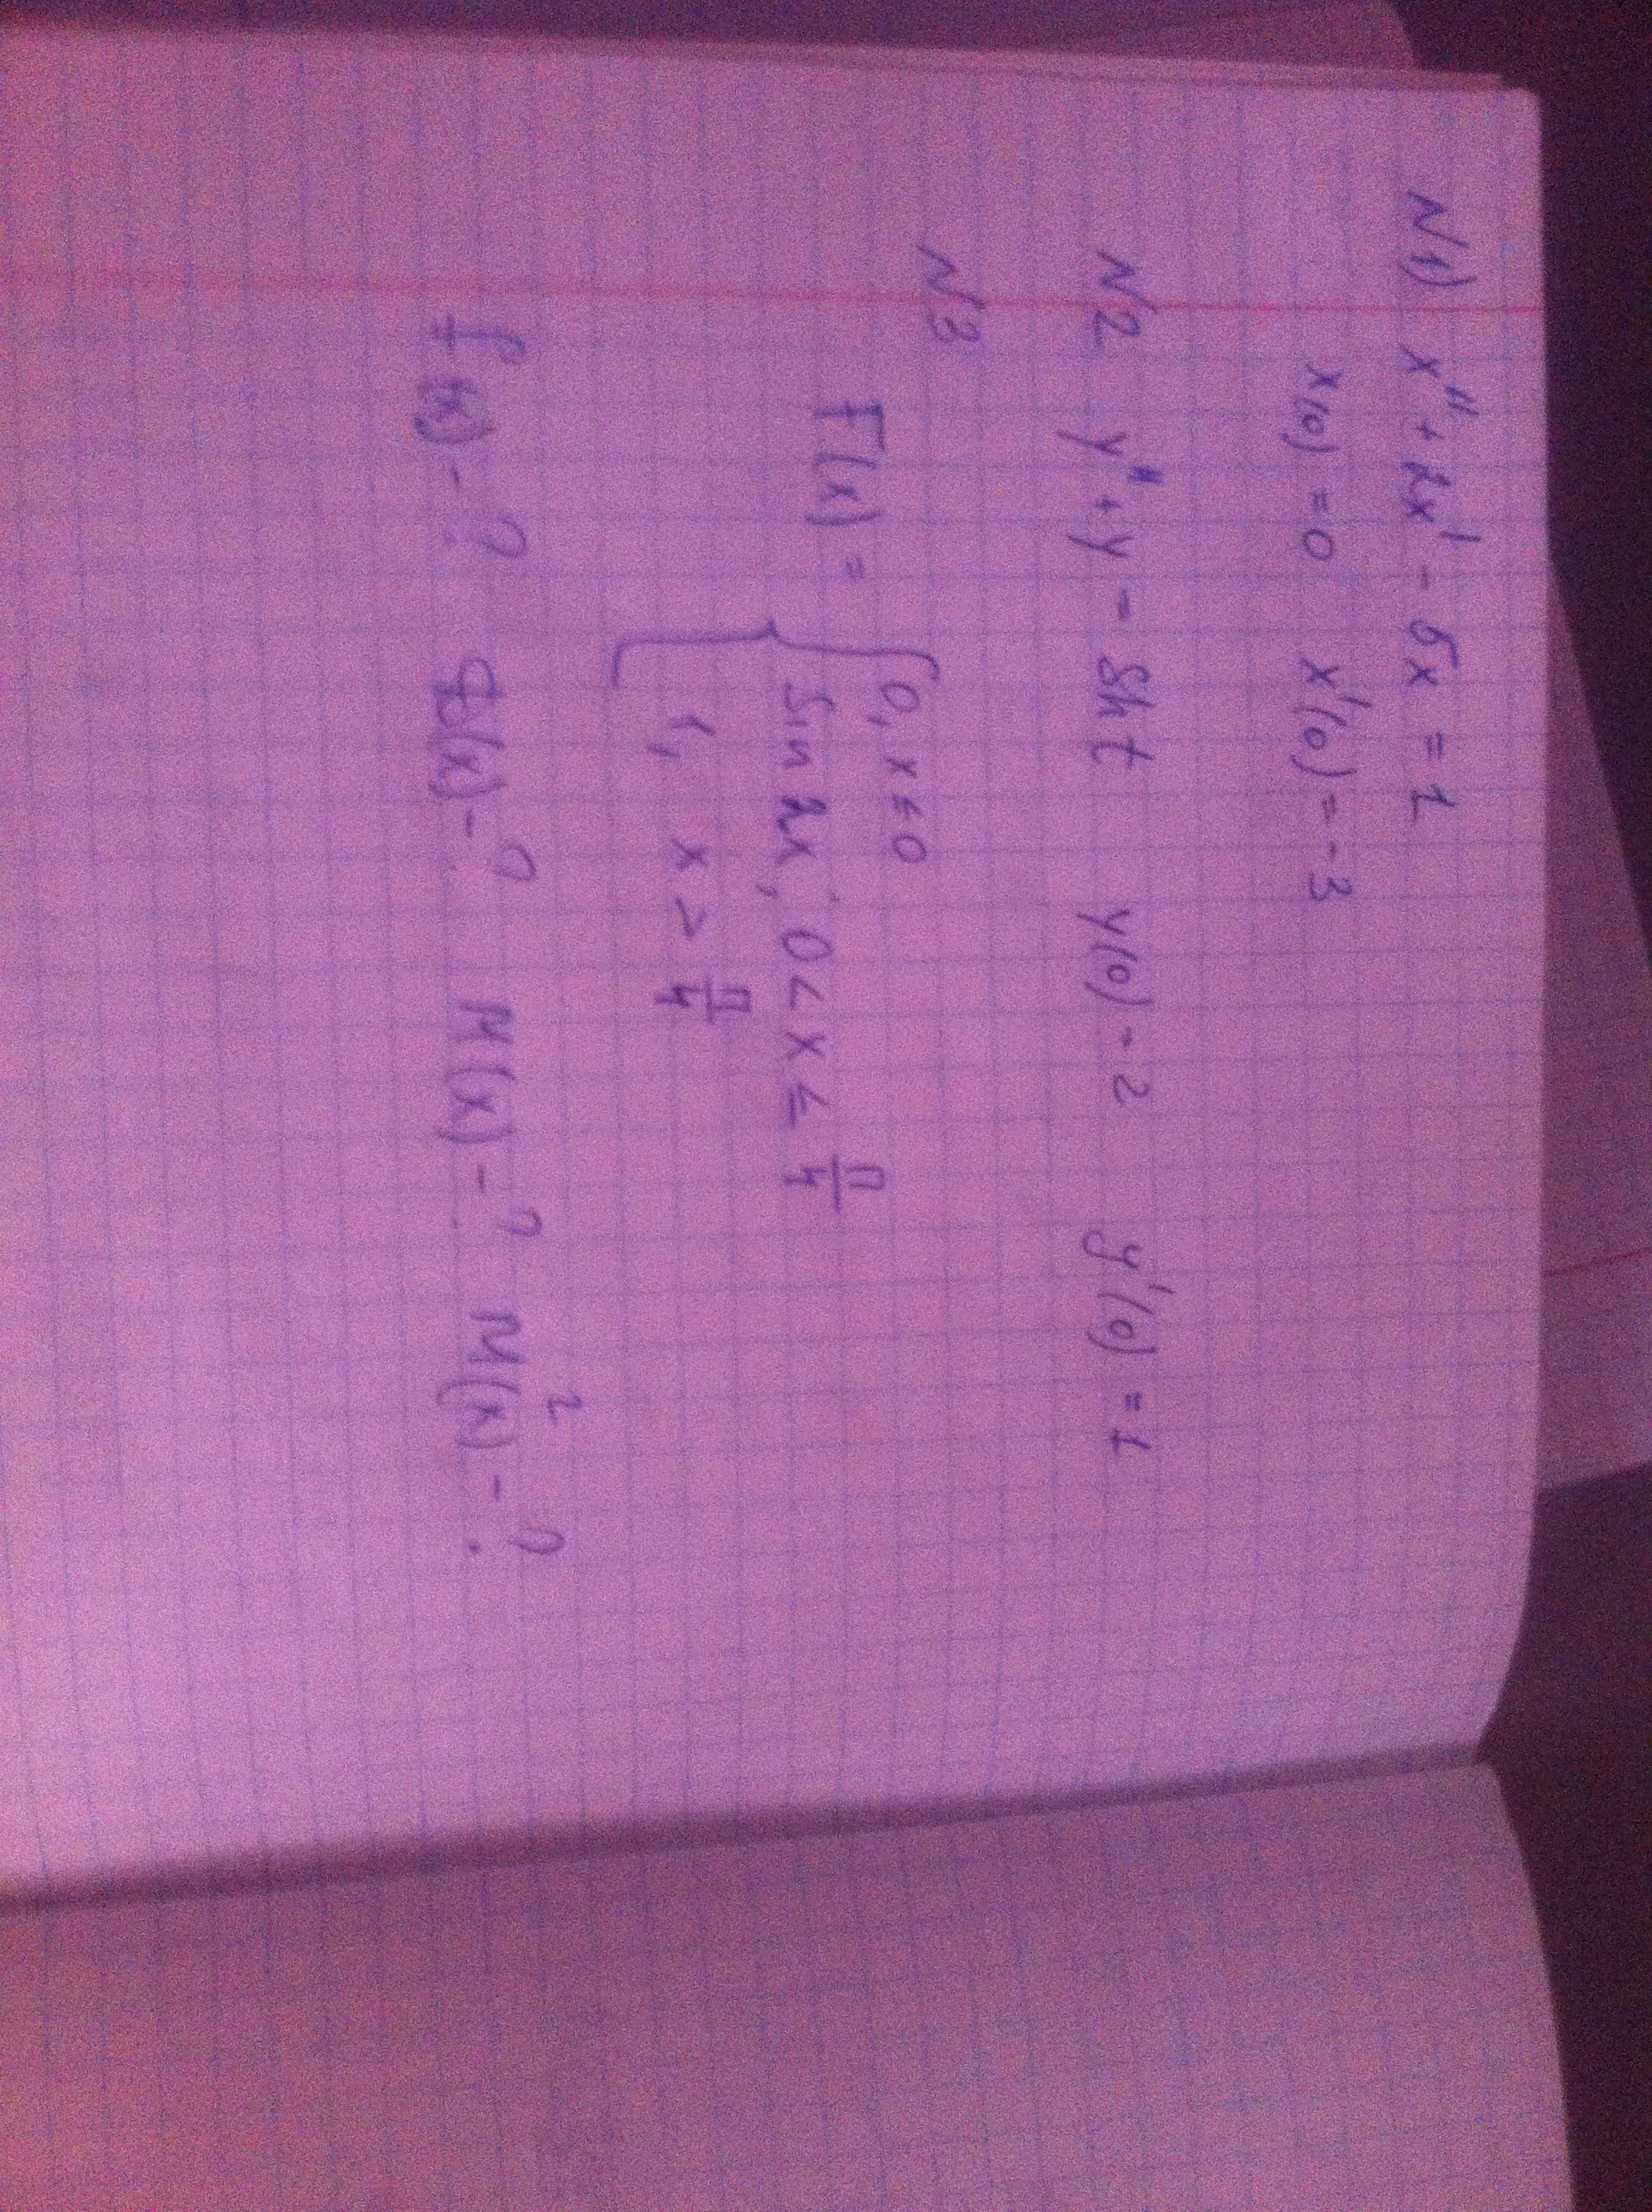 N1) x'' + 2x' - 5x = 1
x(0) = 0 x'(0) = -3
N2 y'' + y = sht y(0) = 2 y'(0) = 1
N3
F(x) = { 0, x ≤ 0
sin 2x, 0 < x ≤ π/4
1, x > π/4
f(x) - ? D(x) - ? M(x) - ? M(x)² - ?